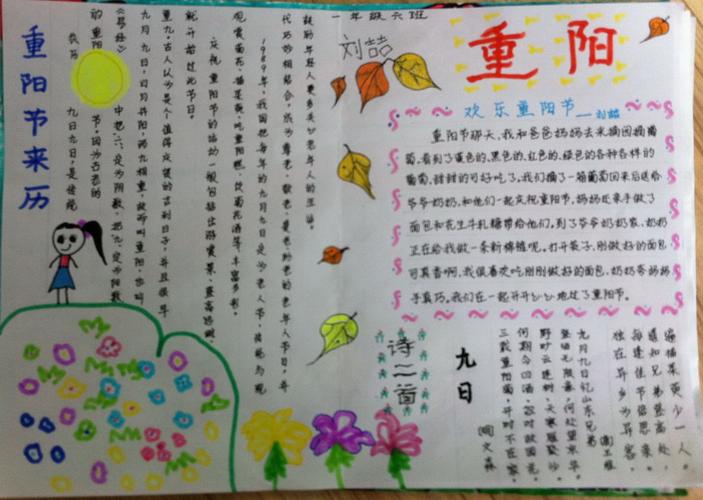 重阳节来历
农历九月九日,是传统
的重阳节。因为古老的
《易经》中把六定为阴数,把九定为阳数,
九月九日,日月并阳,两九相重,故而叫重阳,也叫
重九。古人认为是个值得庆贺的吉利日子,并且很早
就开始过此节日。
庆祝重阳节的活动一般包括出游赏景、登高远眺、
观赏菊花、插茱萸、吃重阳糕、饮菊花酒等丰富多彩。
1989年,我国把每年的九月九日定为老人节,传统与现
代巧妙相结合,成为尊老、敬老、爱老、助老的老年人节日,并
鼓励年轻人更多关心老年人的生活。
一年级六班
刘喆
重阳
欢乐重阳节——刘喆
重阳节那天,我和爸爸妈妈去采摘园摘葡
萄,看到了黄色的、黑色的、红色的、绿色的各种各样的
葡萄,甜甜的可好吃了。我们摘了一箱葡萄回来后送给
爷爷奶奶,和他们一起庆祝重阳节,妈妈还亲手做了
面包和花生牛轧糖带给他们,到了爷爷奶奶家,奶奶
正在给我做一条新棉裤呢。打开袋子,刚做好的面包
可真香啊,我很喜欢吃刚刚做好的面包,奶奶夸妈妈
手真巧,我们在一起开开心心地过了重阳节。
诗二首
九日
(明)文森
三载重阳菊,开时不在家。
何期今日酒,忽对故园花。
野旷云连树,天寒雁聚沙。
登临无限意,何处望京华。
九月九日忆山东兄弟
唐 王维
独在异乡为异客,
每逢佳节倍思亲。
遥知兄弟登高处,
遍插茱萸少一人。